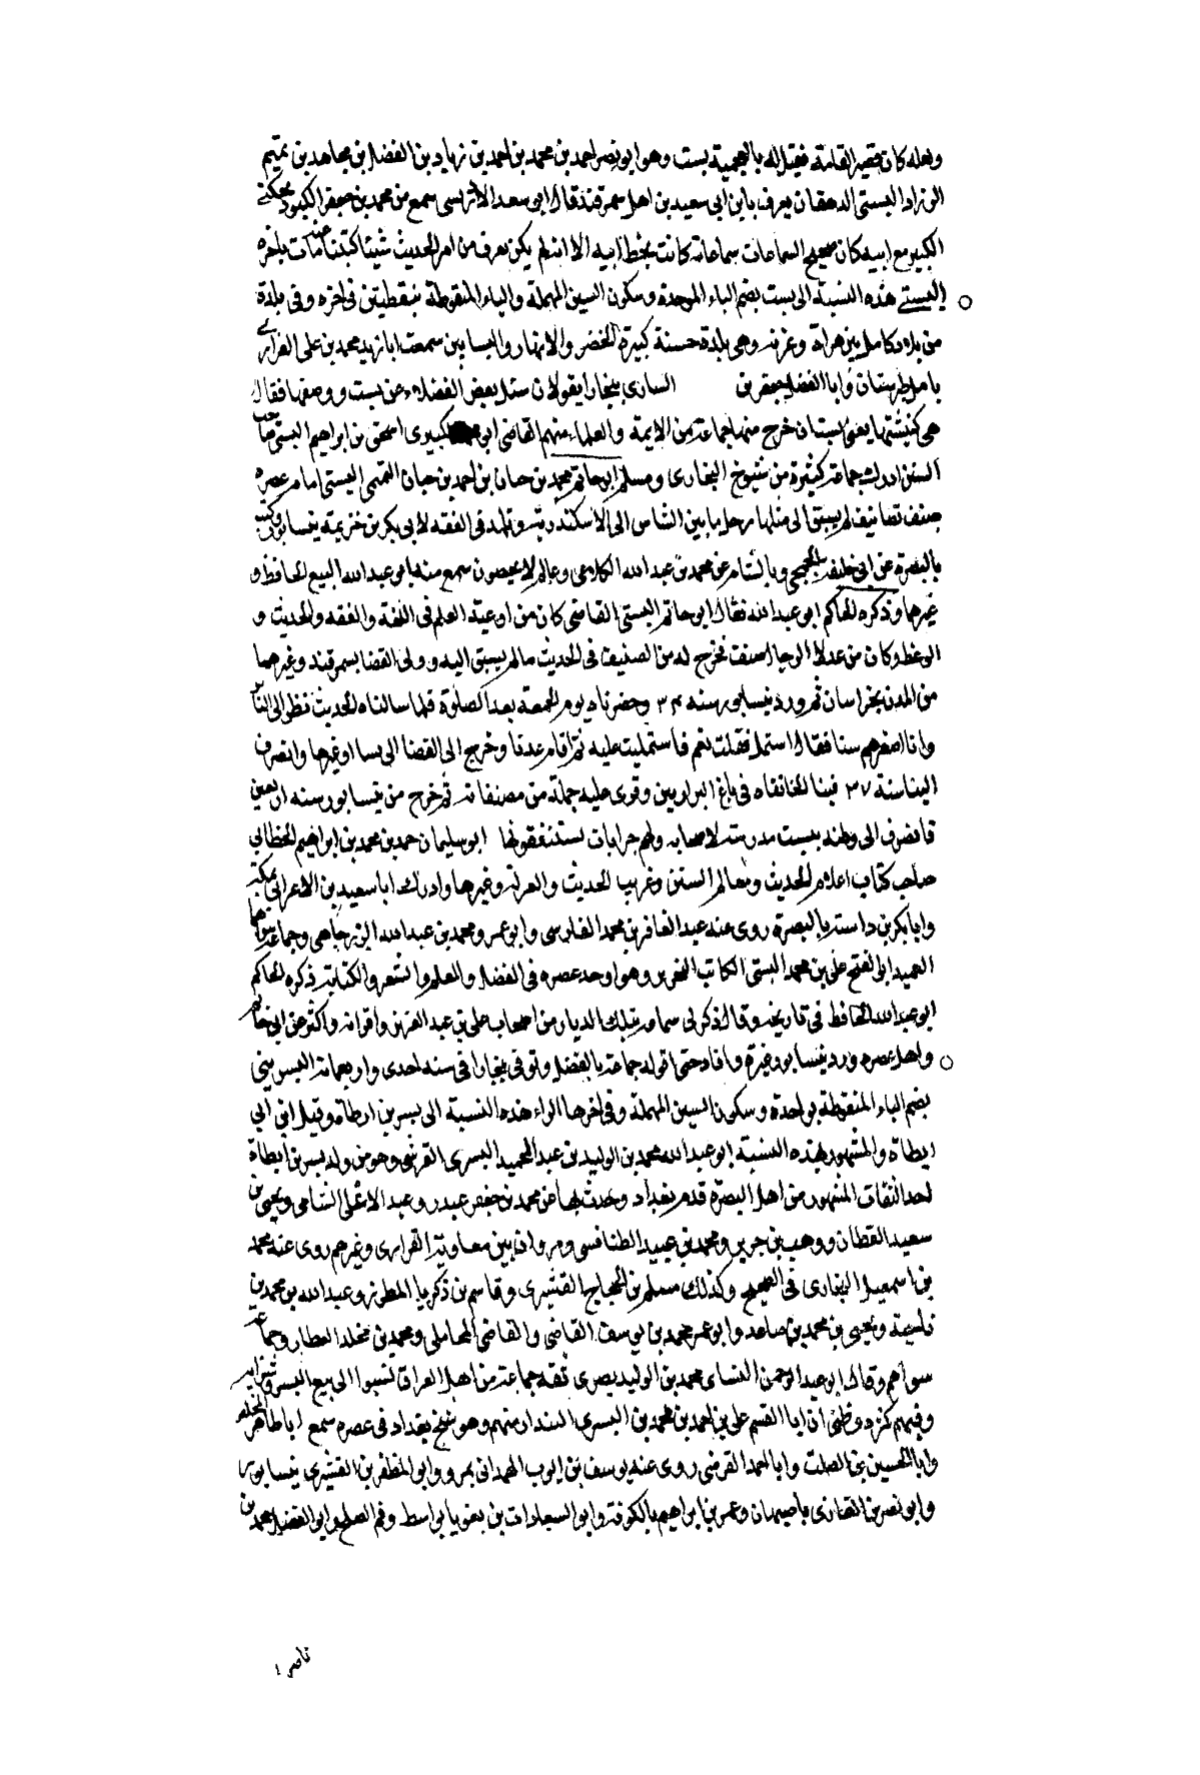 ولعله كان قصير القامة فقيل له بالعجمية بست وهو ابو نصر احمد بن محمد بن احمد بن زياد بن الفضل بن مجاهد بن تميم
الزراد البستي الدهقان يعرف بابن ابي سعيد بن اهل سمرقند قال ابو سعد الادريسي سمع من محمد بن جعفر الكبود
الكبير مع ابيه كان صحيح السماعات سماعاته كانت بخط ابيه الا انه لم يكن يعرف من امر الحديث شيئا كتبنا عنه مات باخره
البستي هذه النسبة الى بست بضم الباء الموحدة وسكون السين المهملة والتاء المنقوطة بنقطتين في اخره وهي بلدة
من بلاد كابل بين هراة وغزنه وهي بلدة حسنة كبيرة الخضر والانهار والبساتين سمعت ابا زيد محمد بن علي
بامل طبرستان وابا الفضل جعفر بن الساري ببخارا يقولان سئل بعض الفضلاء عن بست ووصفها فقال
هي كتثنيتها يعني بستان خرج منها جماعة من الايمة والعلماء منهم القاضي ابو اسحق بن ابراهيم البستي صاحب
السنن ادرك جماعة كثيرة من شيوخ البخاري ومسلم ابو حاتم محمد بن حبان بن احمد بن حبان التميمي البستي امام عصره
صنف تصانيف لم يسبق الى مثلها رحل ما بين الشاش الى الاسكندرية وتلمذ في الفقه لابي بكر بن خزيمة بنيسابور وكتب
بالبصرة عن ابي خليفة الجمحي وبالشام عن محمد بن عبد الله الكلاعي وعالم لا يحصون سمع منه ابو عبد الله البيع الحافظ و
غيرهما وذكره الحاكم ابو عبد الله فقال ابو حاتم البستي القاضي كان من اوعية العلم في اللغة والفقه والحديث و
الوعظ وكان من عدلاء الرجال صنف فخرج له من الصنيف في الحديث ما لم يسبق اليه وولي القضا بسمرقند وغيرها
من المدن بخراسان ثم ورد نيسابور سنه ٣٣ وحضرناه يوم الجمعة بعد الصلوة فلما سالناه الحديث نظر الى الناس
وانا اصغرهم سنا فقال استمل فقلت نعم فاستمليت عليه ثم اقام عندنا وخرج الى القضا الى نسا او غيرها وانصرف
الينا سنة ٣٧ فبنا الخانقاه في باغ البرازيين وقرى عليه جملة من مصنفاته ثم خرج من نيسابور سنه اربعين
فانصرف الى وطنه ببست مدرسته لاصحابه ولهم جرايات يستنفقونها ابو سليمان حمد بن محمد بن ابراهيم الخطابي
صاحب كتاب اعلام الحديث ومعالم السنن وغريب الحديث والعزلة وغيرها وادرك ابا سعيد بن الاعرابي بمكة
وابا بكر بن داسة بالبصرة روى عنه عبد الغافر بن محمد الفارسي وابو عمرو محمد بن عبد الله الرزجاهي وجماعة سواهما
العميد ابو الفتح علي بن محمد البستي الكاتب النحرير وهو اوحد عصره في الفضل والعلم والشعر والكتابة ذكره الحاكم
ابو عبد الله الحافظ في تاريخه وقال ذكر لي سماعه بتلك الديار من اصحاب علي بن عبد العزيز واقرانه واكثر عن ابي حاتم
واهل عصره ورد نيسابور غيرة وافاد حتى اقر له جماعة بالفضل وتوفي ببخارا في سنه احدى واربعمائة البسري
بضم الباء المنقوطة بواحدة وسكون السين المهملة وفي اخرها الراء هذه النسبة الى بسر بن ارطاة وقيل ابن ابي
ارطاة والمشهور بهذه النسبة ابو عبد الله محمد بن الوليد بن عبد الحميد البسري القرشي وهو من ولد بسر بن ارطاة
احد الثقات المشهور من اهل البصرة قدم بغداد وحدث بها عن محمد بن جعفر غندر وعبد الاعلى الشامي ويحيى بن
سعيد القطان ووهب بن جرير ومحمد بن عبيد الطنافسي ومروان بن معاوية الفزاري وغيرهم روى عنه محمد
بن اسمعيل البخاري في الصحيح وكذلك مسلم بن الحجاج القشيري وقاسم بن زكريا المطرز وعبد الله بن محمد بن
ناجية ويحيى بن محمد بن صاعد وابو عمر محمد بن يوسف القاضي والقاضي المحاملي ومحمد بن مخلد العطار وجماعة
سواهم وقال ابو عبد الرحمن النسائي محمد بن الوليد بصري ثقه جماعة من اهل العراق نسبوا الى بيع البسر وشرايه
وفيهم كثره وظني ان ابا القسم علي بن احمد بن محمد بن البسري البندار منهم وهو شيخ بغداد في عصره سمع ابا طاهر المخلص
وابا الحسين بن الصلت وابا احمد الفرضي روى عنه يوسف بن ايوب الهمداني بمرو وابو المظفر بن القشيري بنيسابور
وابو نصر بن الغازي باصبهان وعمر بن ابراهيم بالكوفة وابو السعادات بن بغوبا بواسط وفم الصلح وابو الفضل محمد بن
ناصر